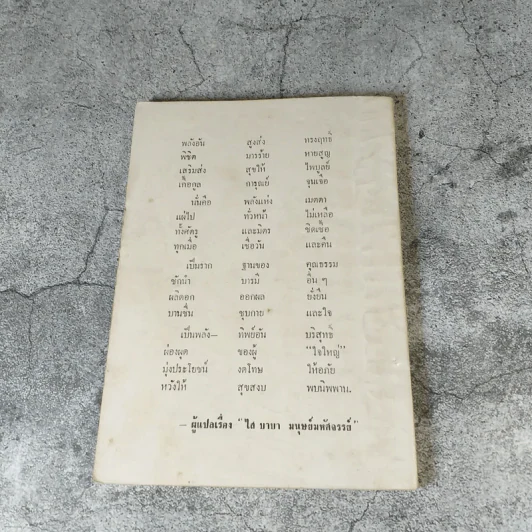 พลังอัน สูงส่ง ทรงฤทธิ์
พิชิต มารร้าย หายสูญ
เสริมส่ง สุขให้ ไพบูลย์
เกื้อกูล การุณย์ จุนเจือ
นั่นคือ พลังแห่ง เมตตา
แผ่ไป ทั่วหน้า ไม่เหลือ
ทั้งศัตรู และมิตร ชิดเชื้อ
ทุกเมื่อ เชื่อวัน และคืน
เป็นราก ฐานของ คุณธรรม
ชักนำ บารมี อื่น ๆ
ผลิดอก ออกผล ยั่งยืน
บานชื่น ชุบกาย และใจ
เป็นพลัง— ทิพย์อัน บริสุทธิ์
ผ่องผุด ของผู้ "ใจใหญ่"
มุ่งประโยชน์ งดโทษ ให้อภัย
หวังให้ สุขสงบ พบนิพพาน.
— ผู้แปลเรื่อง "ไส บาบา มนุษย์มหัศจรรย์"